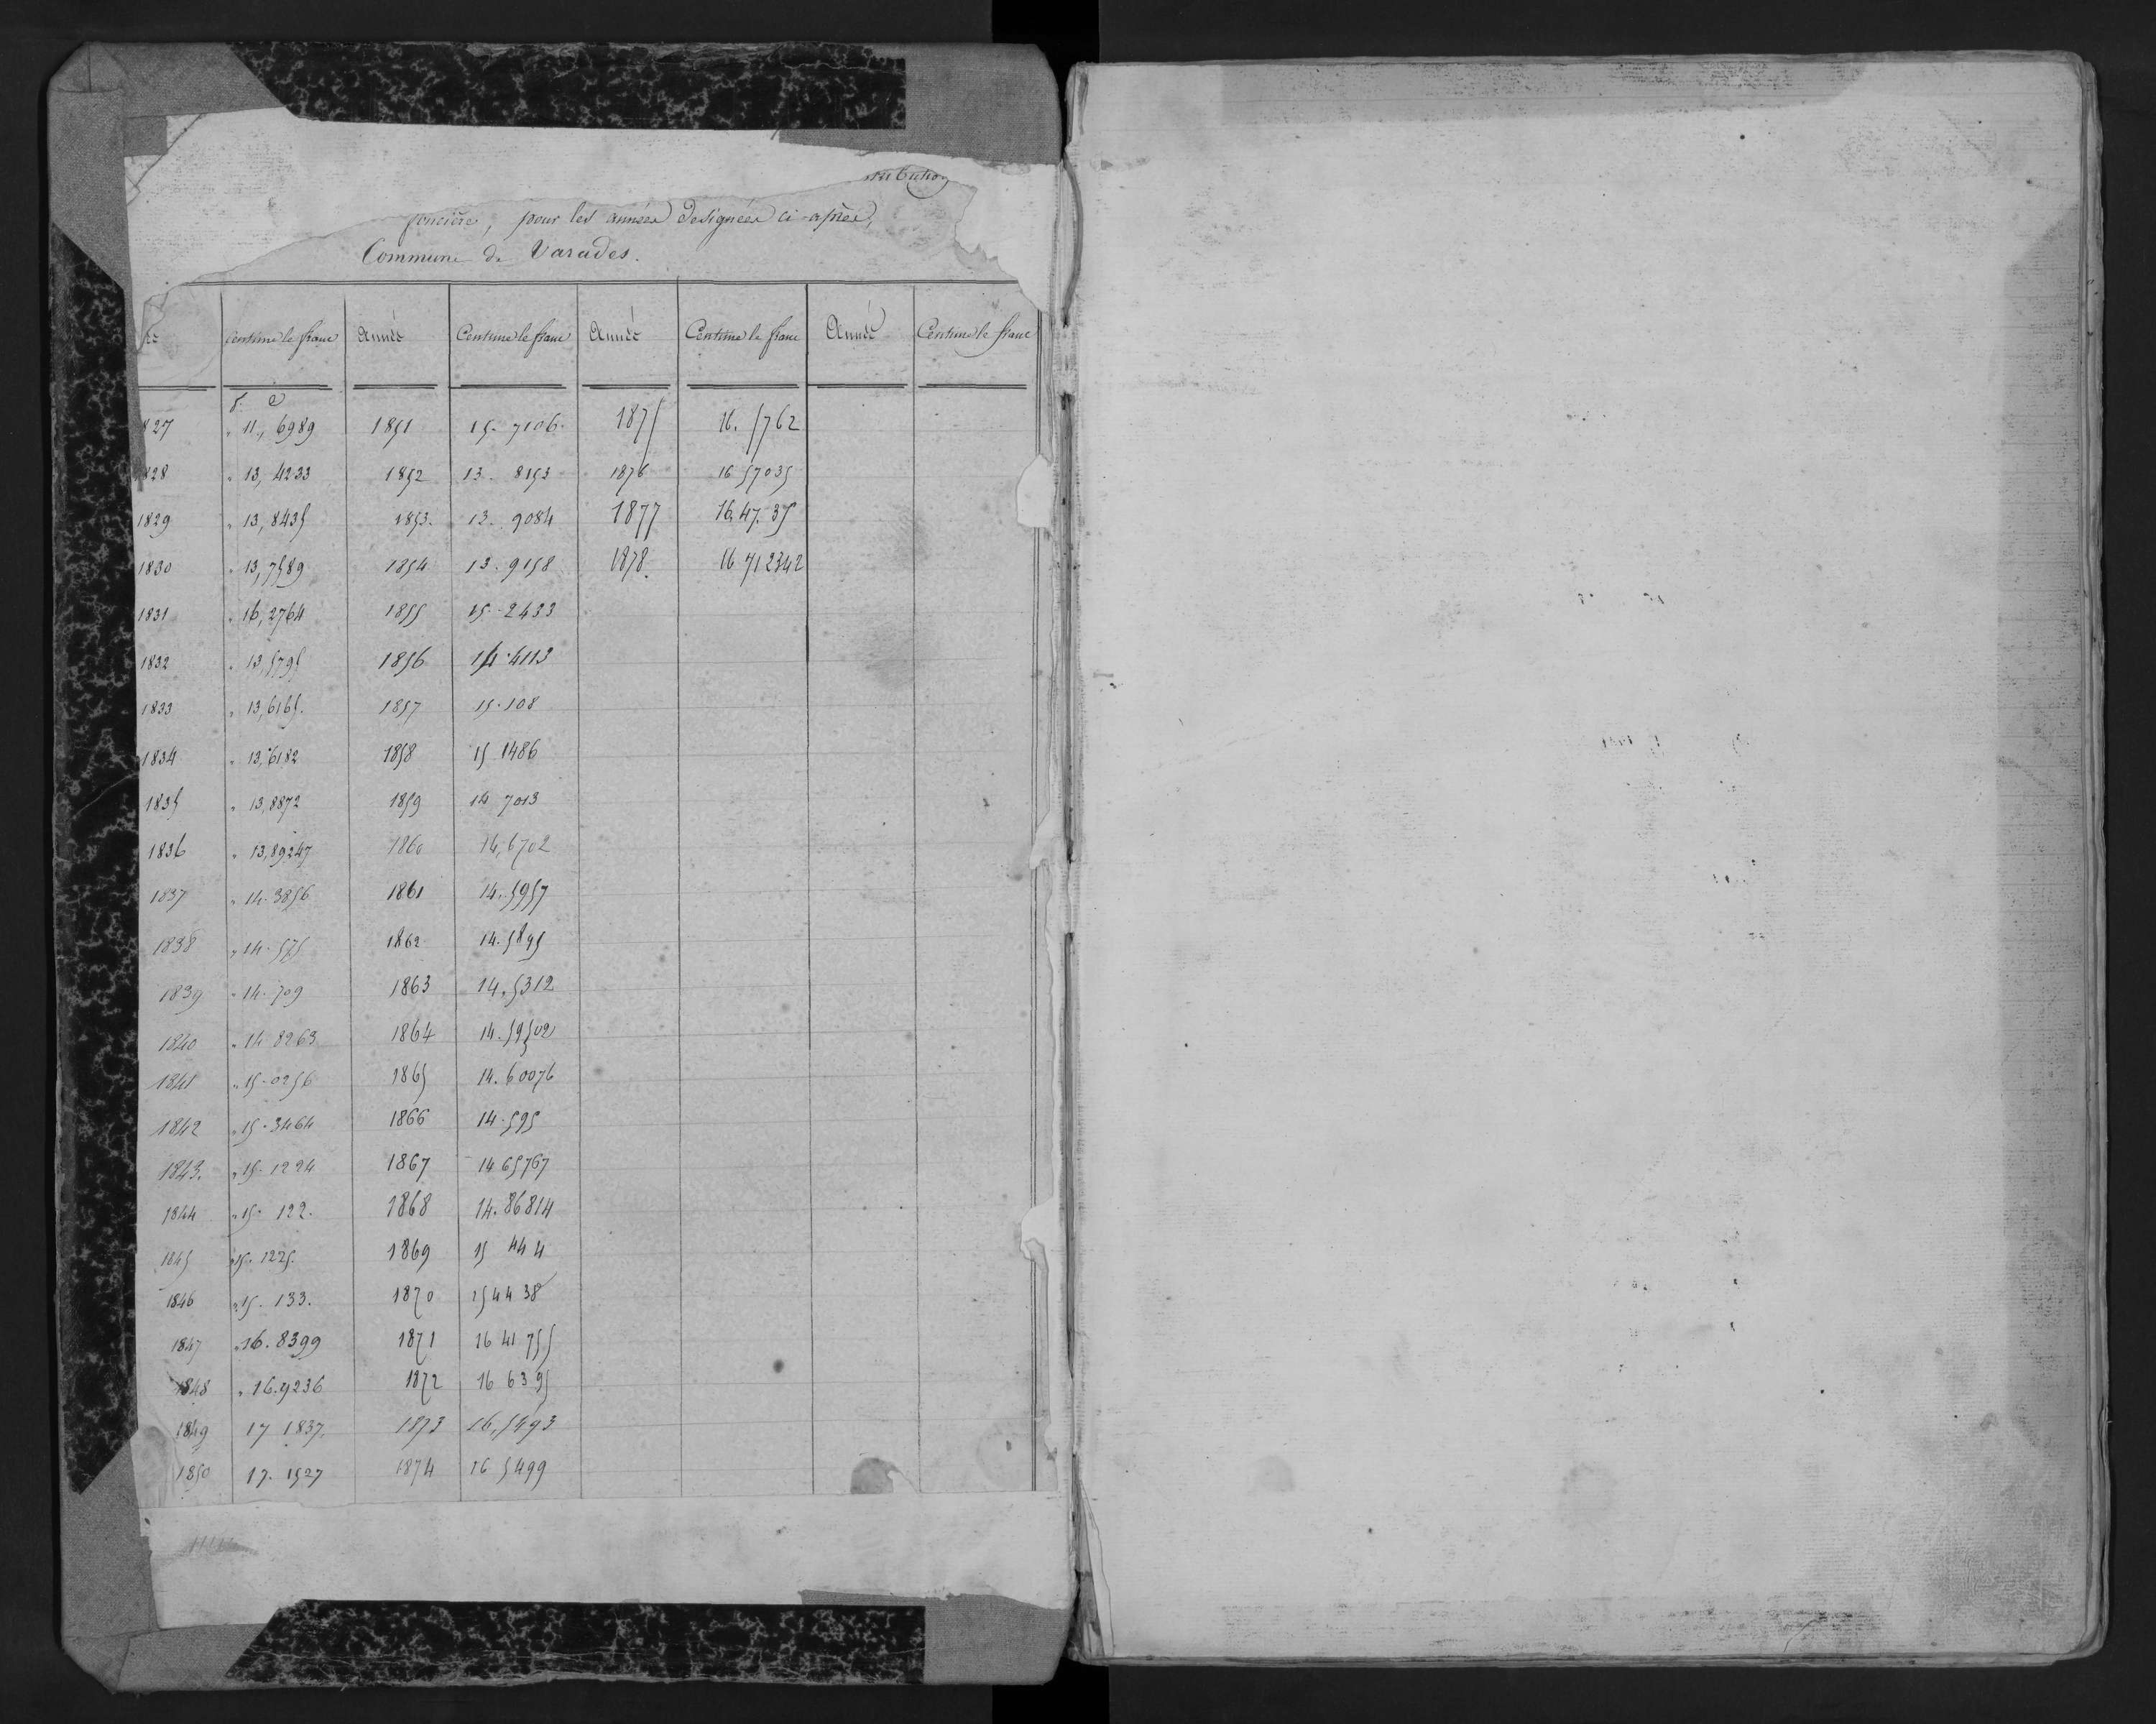 foncière, pour les années designées ci-après,
Commune de Varades.
centime le franc Année Centime le franc Année Centime le franc Année Centime le franc
f. c
827 " 11, 6989 1851 15. 7106. 1875 16. 5762
828 " 13, 4233 1852 13. 8153 1876 16 57035
1829 " 13, 8435 1853. 13. 9084 1877 16.47.35
1830 " 13,7589 1854 13. 9158 1878. 16 712342
1831 " 16,2764 1855 15. 2433
1832 " 13,5795 1856 14.4113
1833 " 13,6165. 1857 15.108
1834 " 13,6182 1858 15 1486
1835 " 13,8872 1859 14 7013
1836 " 13,89247 1860 14,6702
1837 " 14.3856 1861 14.5957
1838 " 14.575 1862 14.5895
1839 " 14.709 1863 14.5312
1840 " 14 8263 1864 14.59502
1841 " 15.0256 1865 14.60076
1842 " 15.3464 1866 14.595
1843. " 15.1224 1867 14 65767
1844 " 15. 122. 1868 14.86814
1845 " 15. 1225. 1869 15 444
1846 " 15. 133. 1870 15 44 38
1847 " 16.8399 1871 16 41 755
1848 " 16.9236 1872 16 63 95
1849 17 1837. 1873 16,5493
1850 17. 1527 1874 16 5499